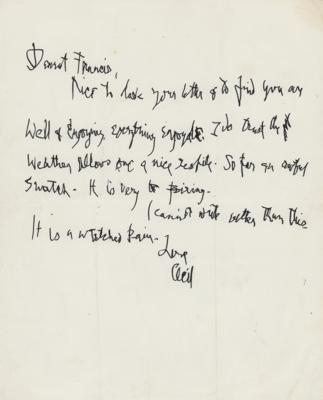 Dearest Francis,
Nice to have your letter & to find you are
Well & Enjoying everything enjoyable. I do trust the
Weather allows one a nice. So far an awful
It is very
I cannot write better than this
It is a wretched pain.
Love
Cecil